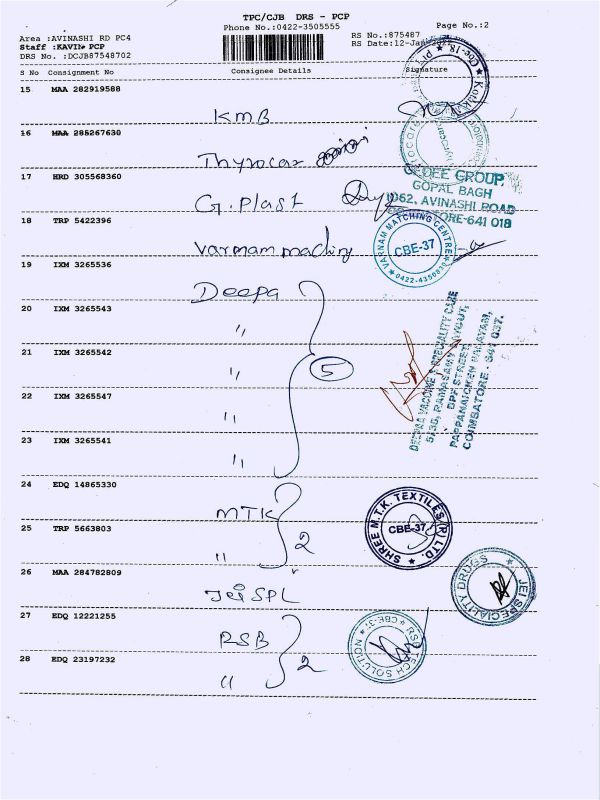 TPC/CJB DRS - PCP
Phone No.:0422-3505555
Page No.:2
Area :AVINASHI RD PC4
RS No.:875487
Staff :KAVIN PCP
RS Date:12-Jan-2022
DRS No. :DCJB87548702
S No Consignment No Consignee Details Signature
15 MAA 282919588
KMB
16 MAA 285267630
Thyrocar
17 HRD 305568360
G. Plast
G DEE GROUP,
GOPAL BAGH
1062, AVINASHI ROAD
COIMBATORE-641 018
18 TRP 5422396
Varnam maching
VARNAM MATCHING CENTRE
CBE-37
0422-4350830
19 IXM 3265536
Deepa
20 IXM 3265543
"
21 IXM 3265542
"
5
22 IXM 3265547
"
23 IXM 3265541
"
DEEPAA VACCINE & SPECIALITY CARE
5/135, RAMASAMY LAYOUT,
BPF STREET,
PAPPANAICKEN PALAYAM,
COIMBATORE - 641 037.
24 EDQ 14865330
MTK
25 TRP 5663803
"
2
SHREE M.T.K. TEXTILES (P) LTD.
CBE-37
26 MAA 284782809
Jei SPL
JEI SPECIALITY DRUGS
27 EDQ 12221255
RSB
28 EDQ 23197232
"
2
RSB TECH SOLUTION
CBE-37